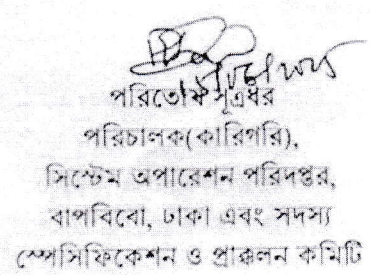 পরিতোষ সূত্রধর
পরিচালক(কারিগরি),
সিস্টেম অপারেশন পরিদপ্তর,
বাপবিবো, ঢাকা এবং সদস্য
স্পেসিফিকেশন ও প্রাক্কলন কমিটি